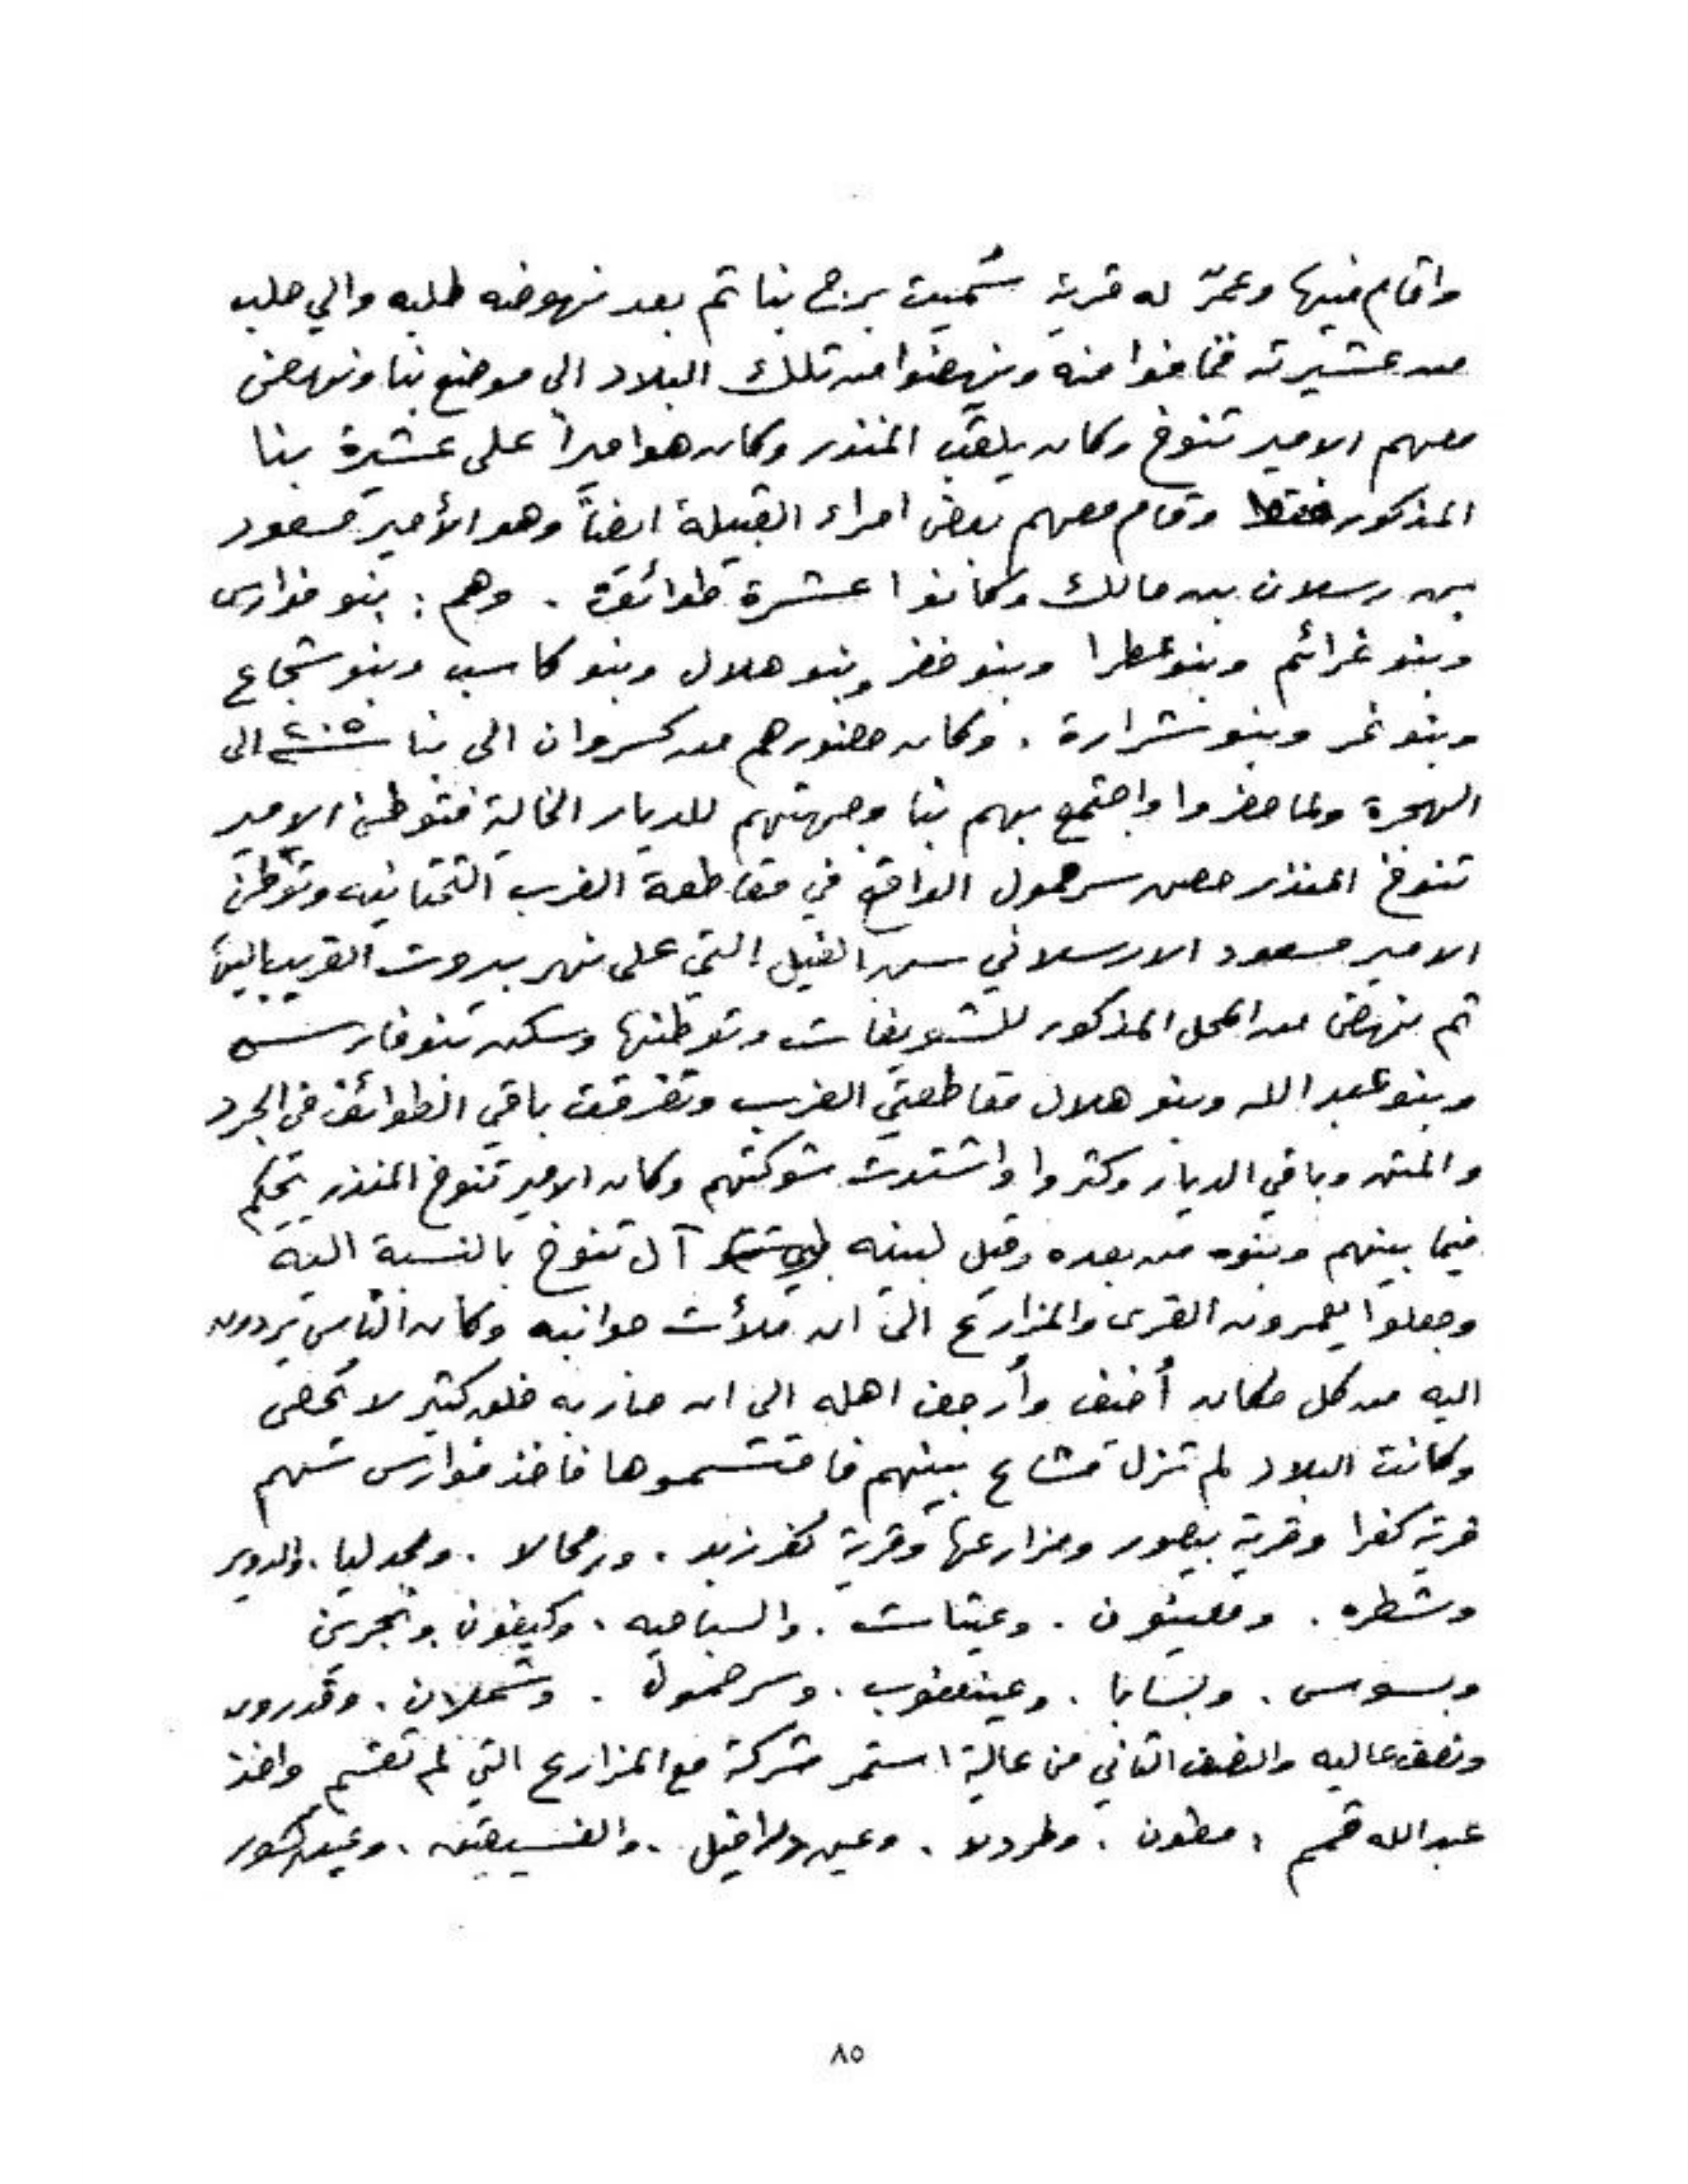 واقام فيها وعمّر له قرية سُميت برج بنا ثم بعد نهوضه طلبه والي حلب
من عشيرته فخافوا منه ونهضوا من تلك البلاد الى موضع بنا ونهض
معهم الامير تنوخ وكان يلقب المنذر وكان هو اميراً على عشيرة بنا
المذكور فقط وقام معهم بعض امراء القبيلة ايضاً وهو الأمير مسعود
بن رسلان بن مالك وكانوا عشرة طوائف . وهم : بنو فوارس
وبنو عزائم وبنو عطرا وبنو خضر وبنو هلال وبنو كاسب وبنو شجاع
وبنو نمر وبنو شرارة . وكان حضورهم من كسروان الى بنا سنة ٢٠٥ الى
الهجرة ولما حضروا واجتمع بهم بنا وجهتهم للديار الخالية فتوطن الامير
تنوخ المنذر حصن سرحمول الواقع في مقاطعة الغرب التحتانيه وتوطن
الامير مسعود الارسلاني سن الفيل التي على نهر بيروت القريب اليها
ثم نهض من المحل المذكور للشويفات وتوطنها وسكن بنو فارس
وبنو عبد الله وبنو هلال مقاطعتي الغرب وتفرقت باقي الطوائف في الجرد
والمتن وباقي الديار وكثروا واشتدت شوكتهم وكان الامير تنوخ المنذر يحكم
فيما بينهم وبنوه من بعده وقيل لبنيه آل تنوخ بالنسبة اليه
وجعلوا يعمرون القرى والمزارع الى ان ملأت جوانبه وكان الناس يردون
اليه من كل مكان أخيف وأرجف اهله الى ان صار به خلق كثير لا يُحصى
وكانت البلاد لم تزل مشاع بينهم فاقتسموها فاخذ فوارس سهم
قرية كفرا وقرية بيصور ومزارعها وقرية كفرزبد . ورمحالا . ومجدليا . والدوير
وشطره . ومعيثون . وعيتات . والسباحيه . وكيفون . وبحرين
وبسوس . وبسابا . وعينعنوب . وسرحمول . وشملان . وقدرون
ونصف عاليه والنصف الثاني من عالية استمر مشركة مع المزارع التي لم تقسم واخذ
عبد الله قسم : رمطون . وطردلا . وعين درافيل . والفسيقين . وعين كسور
٨٥